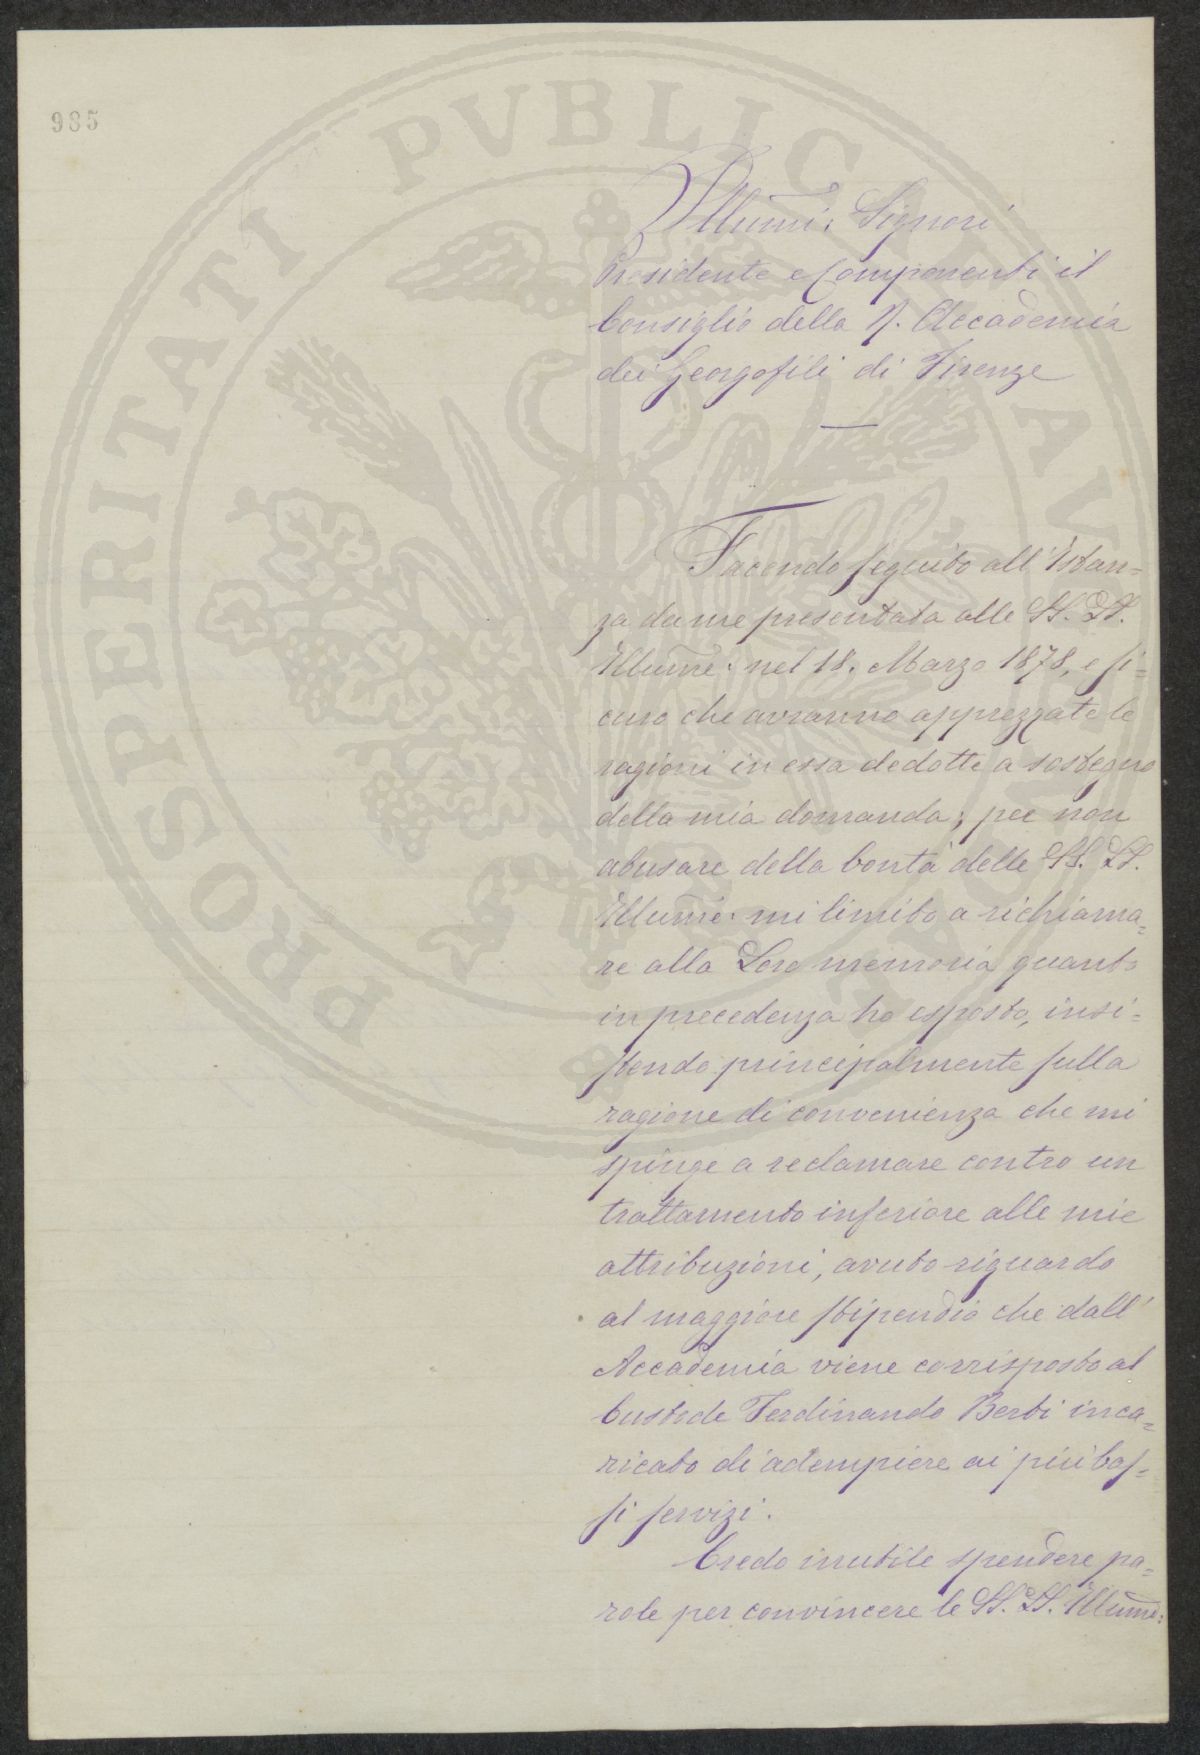 985
PROSPERITATI PVBLICAE AVGENDAE
Illumi: Signori
Presidente e Componenti il
Consiglio della R. Accademia
dei Georgofili di Firenze
Facendo seguito all'Istan=
za da me presentata alle SS. LL.
Illume: nel 18. Marzo 1878, e si=
curo che avranno apprezzate le
ragioni in essa dedotte a sostegno
della mia domanda; per non
abusare della bontà delle SS. LL.
Illume: mi limito a richiama=
re alla Loro memoria quanto
in precedenza ho esposto, insi=
stendo principalmente sulla
ragione di convenienza che mi
spinge a reclamare contro un
trattamento inferiore alle mie
attribuzioni, avuto riguardo
al maggiore stipendio che dall'
Accademia viene corrisposto al
Custode Ferdinando Berti inca=
ricato di adempiere ai più bas=
si servizi.
Credo inutile spendere pa=
role per convincere le SS. LL. Illume: